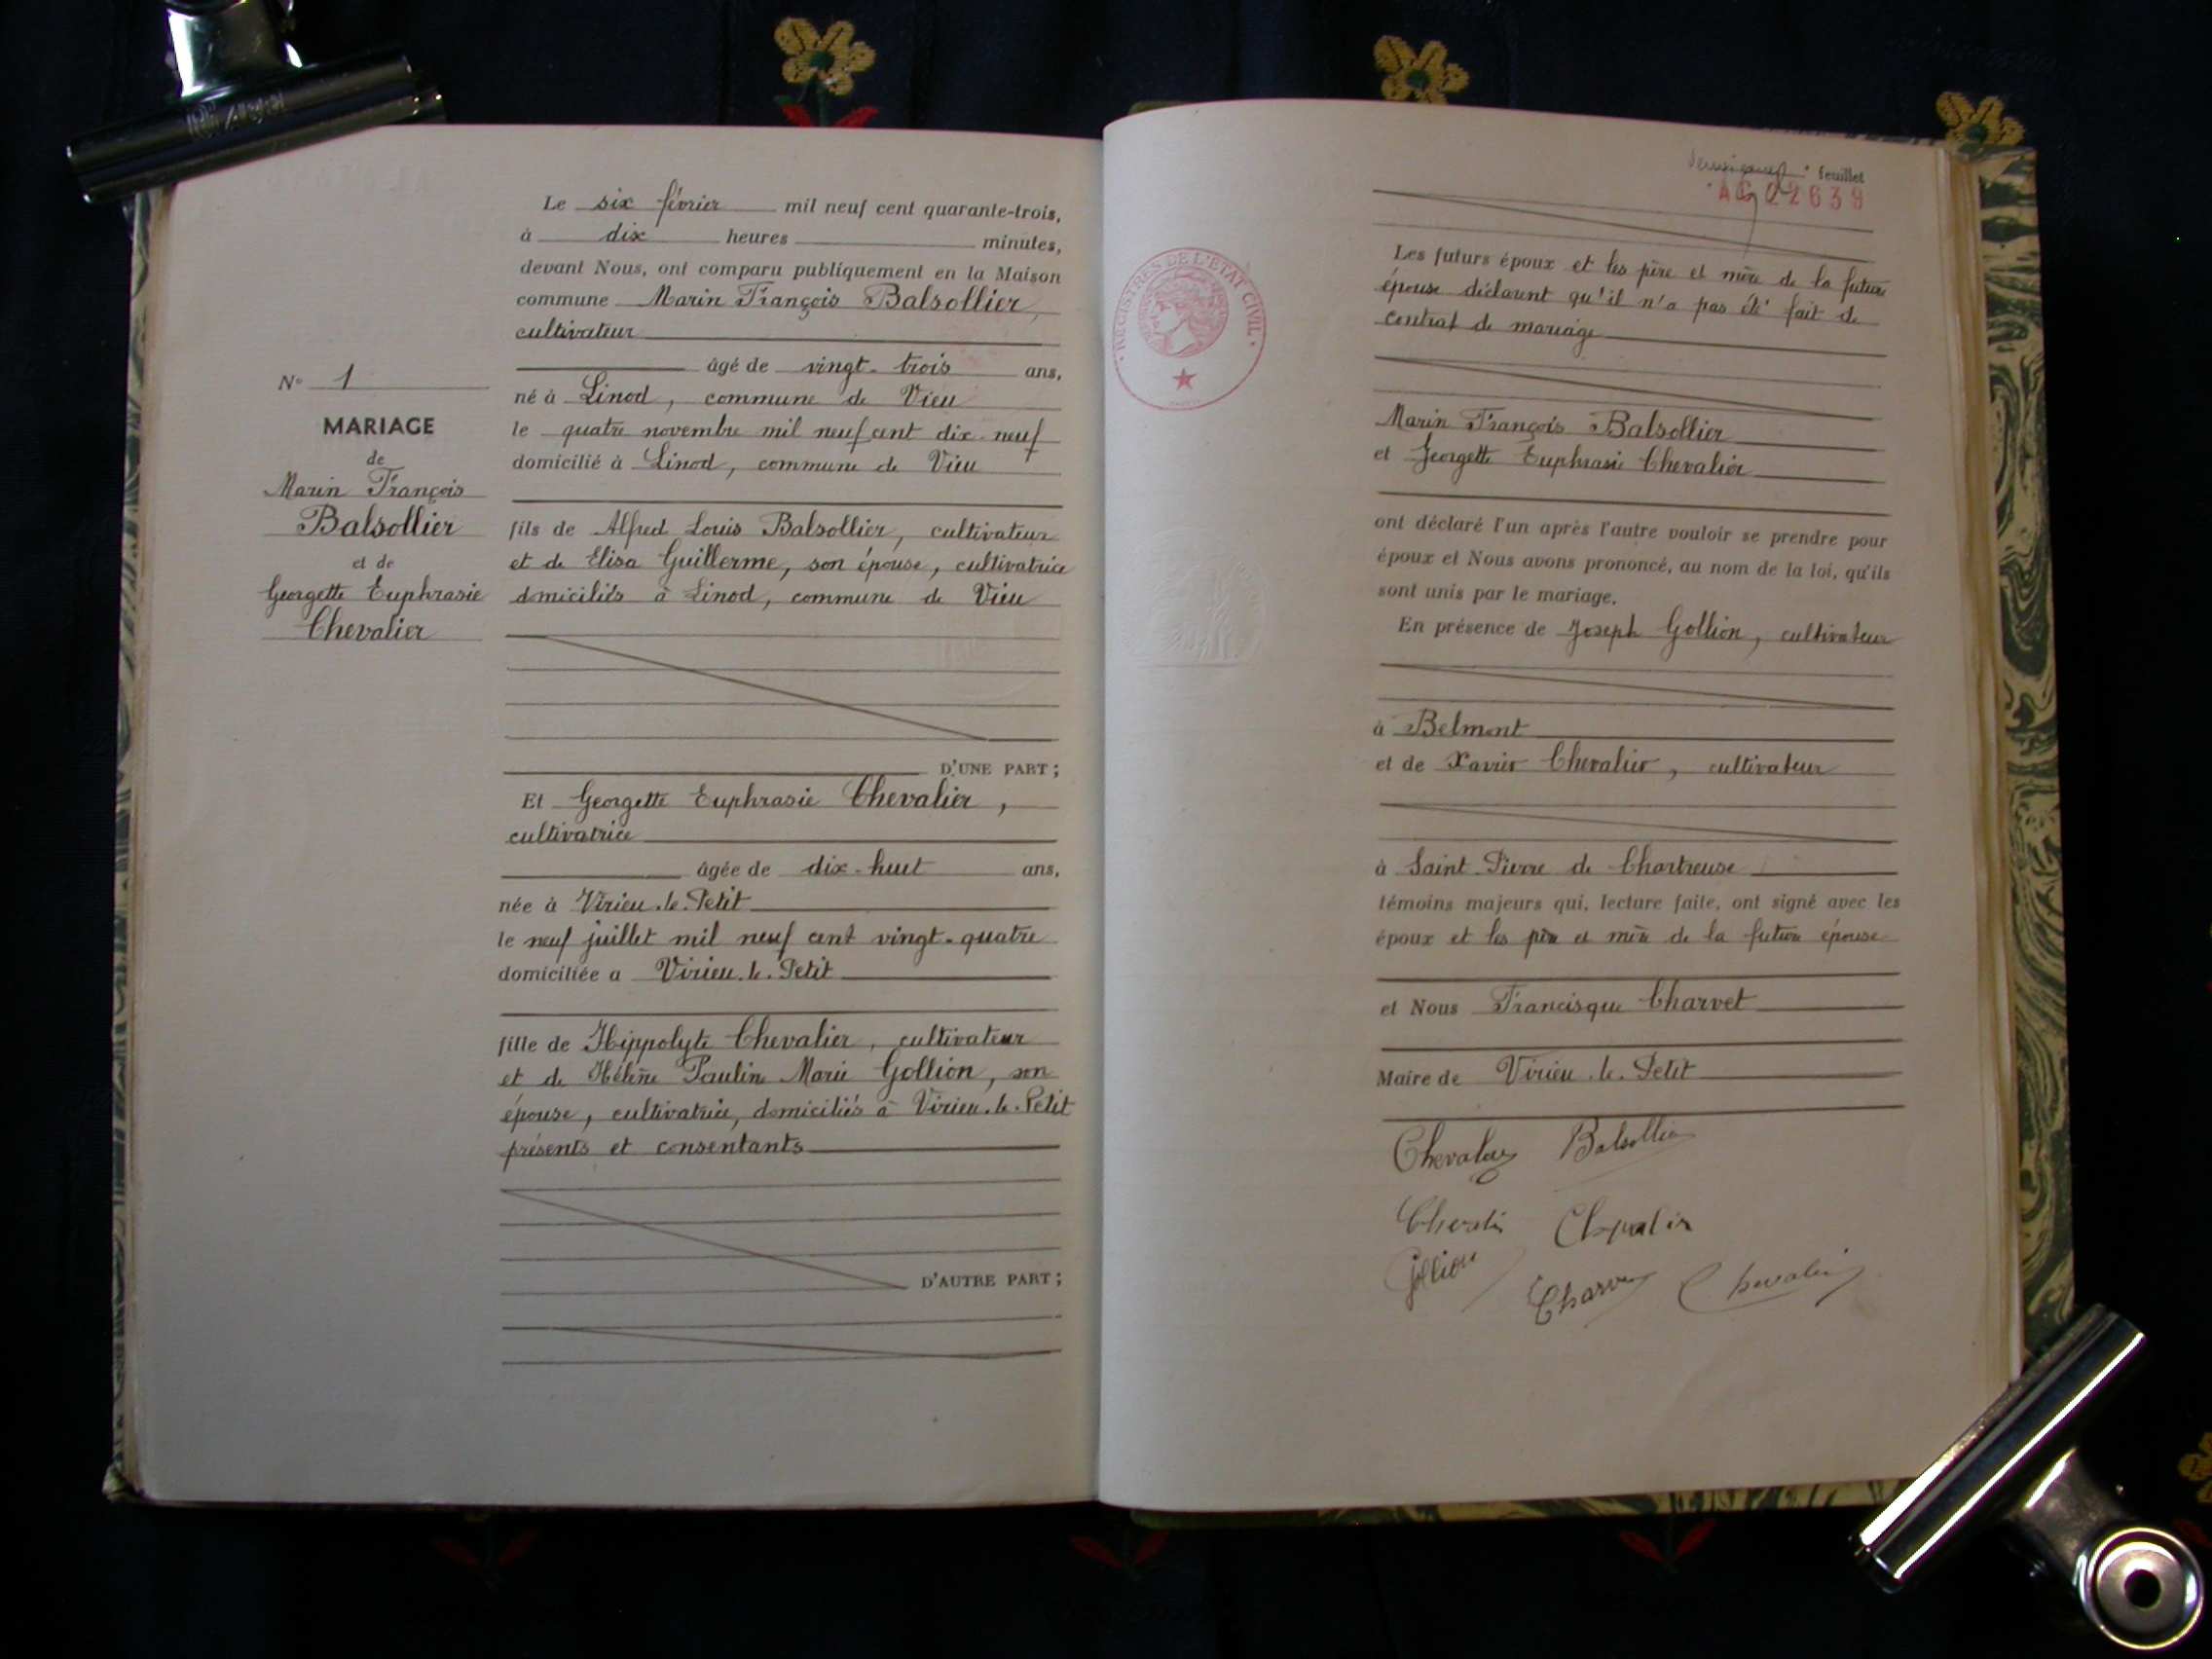 N° 1
MARIAGE
de
Marin François
Balsollier
et de
Georgette Euphrasie
Chevalier
Le six février mil neuf cent quarante-trois,
à dix heures minutes,
devant Nous, ont comparu publiquement en la Maison
commune Marin François Balsollier,
cultivateur
âgé de vingt-trois ans,
né à Linod, commune de Vieu
le quatre novembre mil neuf cent dix-neuf
domicilié à Linod, commune de Vieu
fils de Alfred Louis Balsollier, cultivateur
et de Elisa Guillerme, son épouse, cultivatrice
domiciliés à Linod, commune de Vieu
D'UNE PART;
Et Georgette Euphrasie Chevalier,
cultivatrice
âgée de dix-huit ans,
née à Virieu-le-Petit
le neuf juillet mil neuf cent vingt-quatre
domiciliée a Virieu-le-Petit
fille de Hippolyte Chevalier, cultivateur
et de Hélène Pauline Marie Gollion, son
épouse, cultivatrice, domiciliés à Virieu-le-Petit
présents et consentants
D'AUTRE PART;
feuillet
AG 22639
REGISTRES DE L'ETAT CIVIL
Les futurs époux et les père et mère de la future
épouse déclarent qu'il n'a pas été fait de
contrat de mariage
Marin François Balsollier
et Georgette Euphrasie Chevalier
ont déclaré l'un après l'autre vouloir se prendre pour
époux et Nous avons prononcé, au nom de la loi, qu'ils
sont unis par le mariage.
En présence de Joseph Gollion, cultivateur
à Belmont
et de Xavier Chevalier, cultivateur
à Saint-Pierre de Chartreuse
témoins majeurs qui, lecture faite, ont signé avec les
époux et les père et mère de la future épouse
et Nous Francisque Charvet
Maire de Virieu-le-Petit
Chevalier Balsollier
Chevalier Chevalier
Gollion
Charvet Chevalier